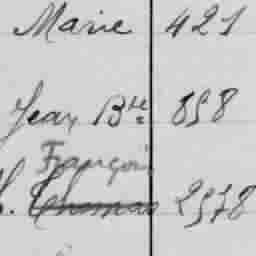 Marie 421
Jean Bte 898
François
S. Thomas 2978